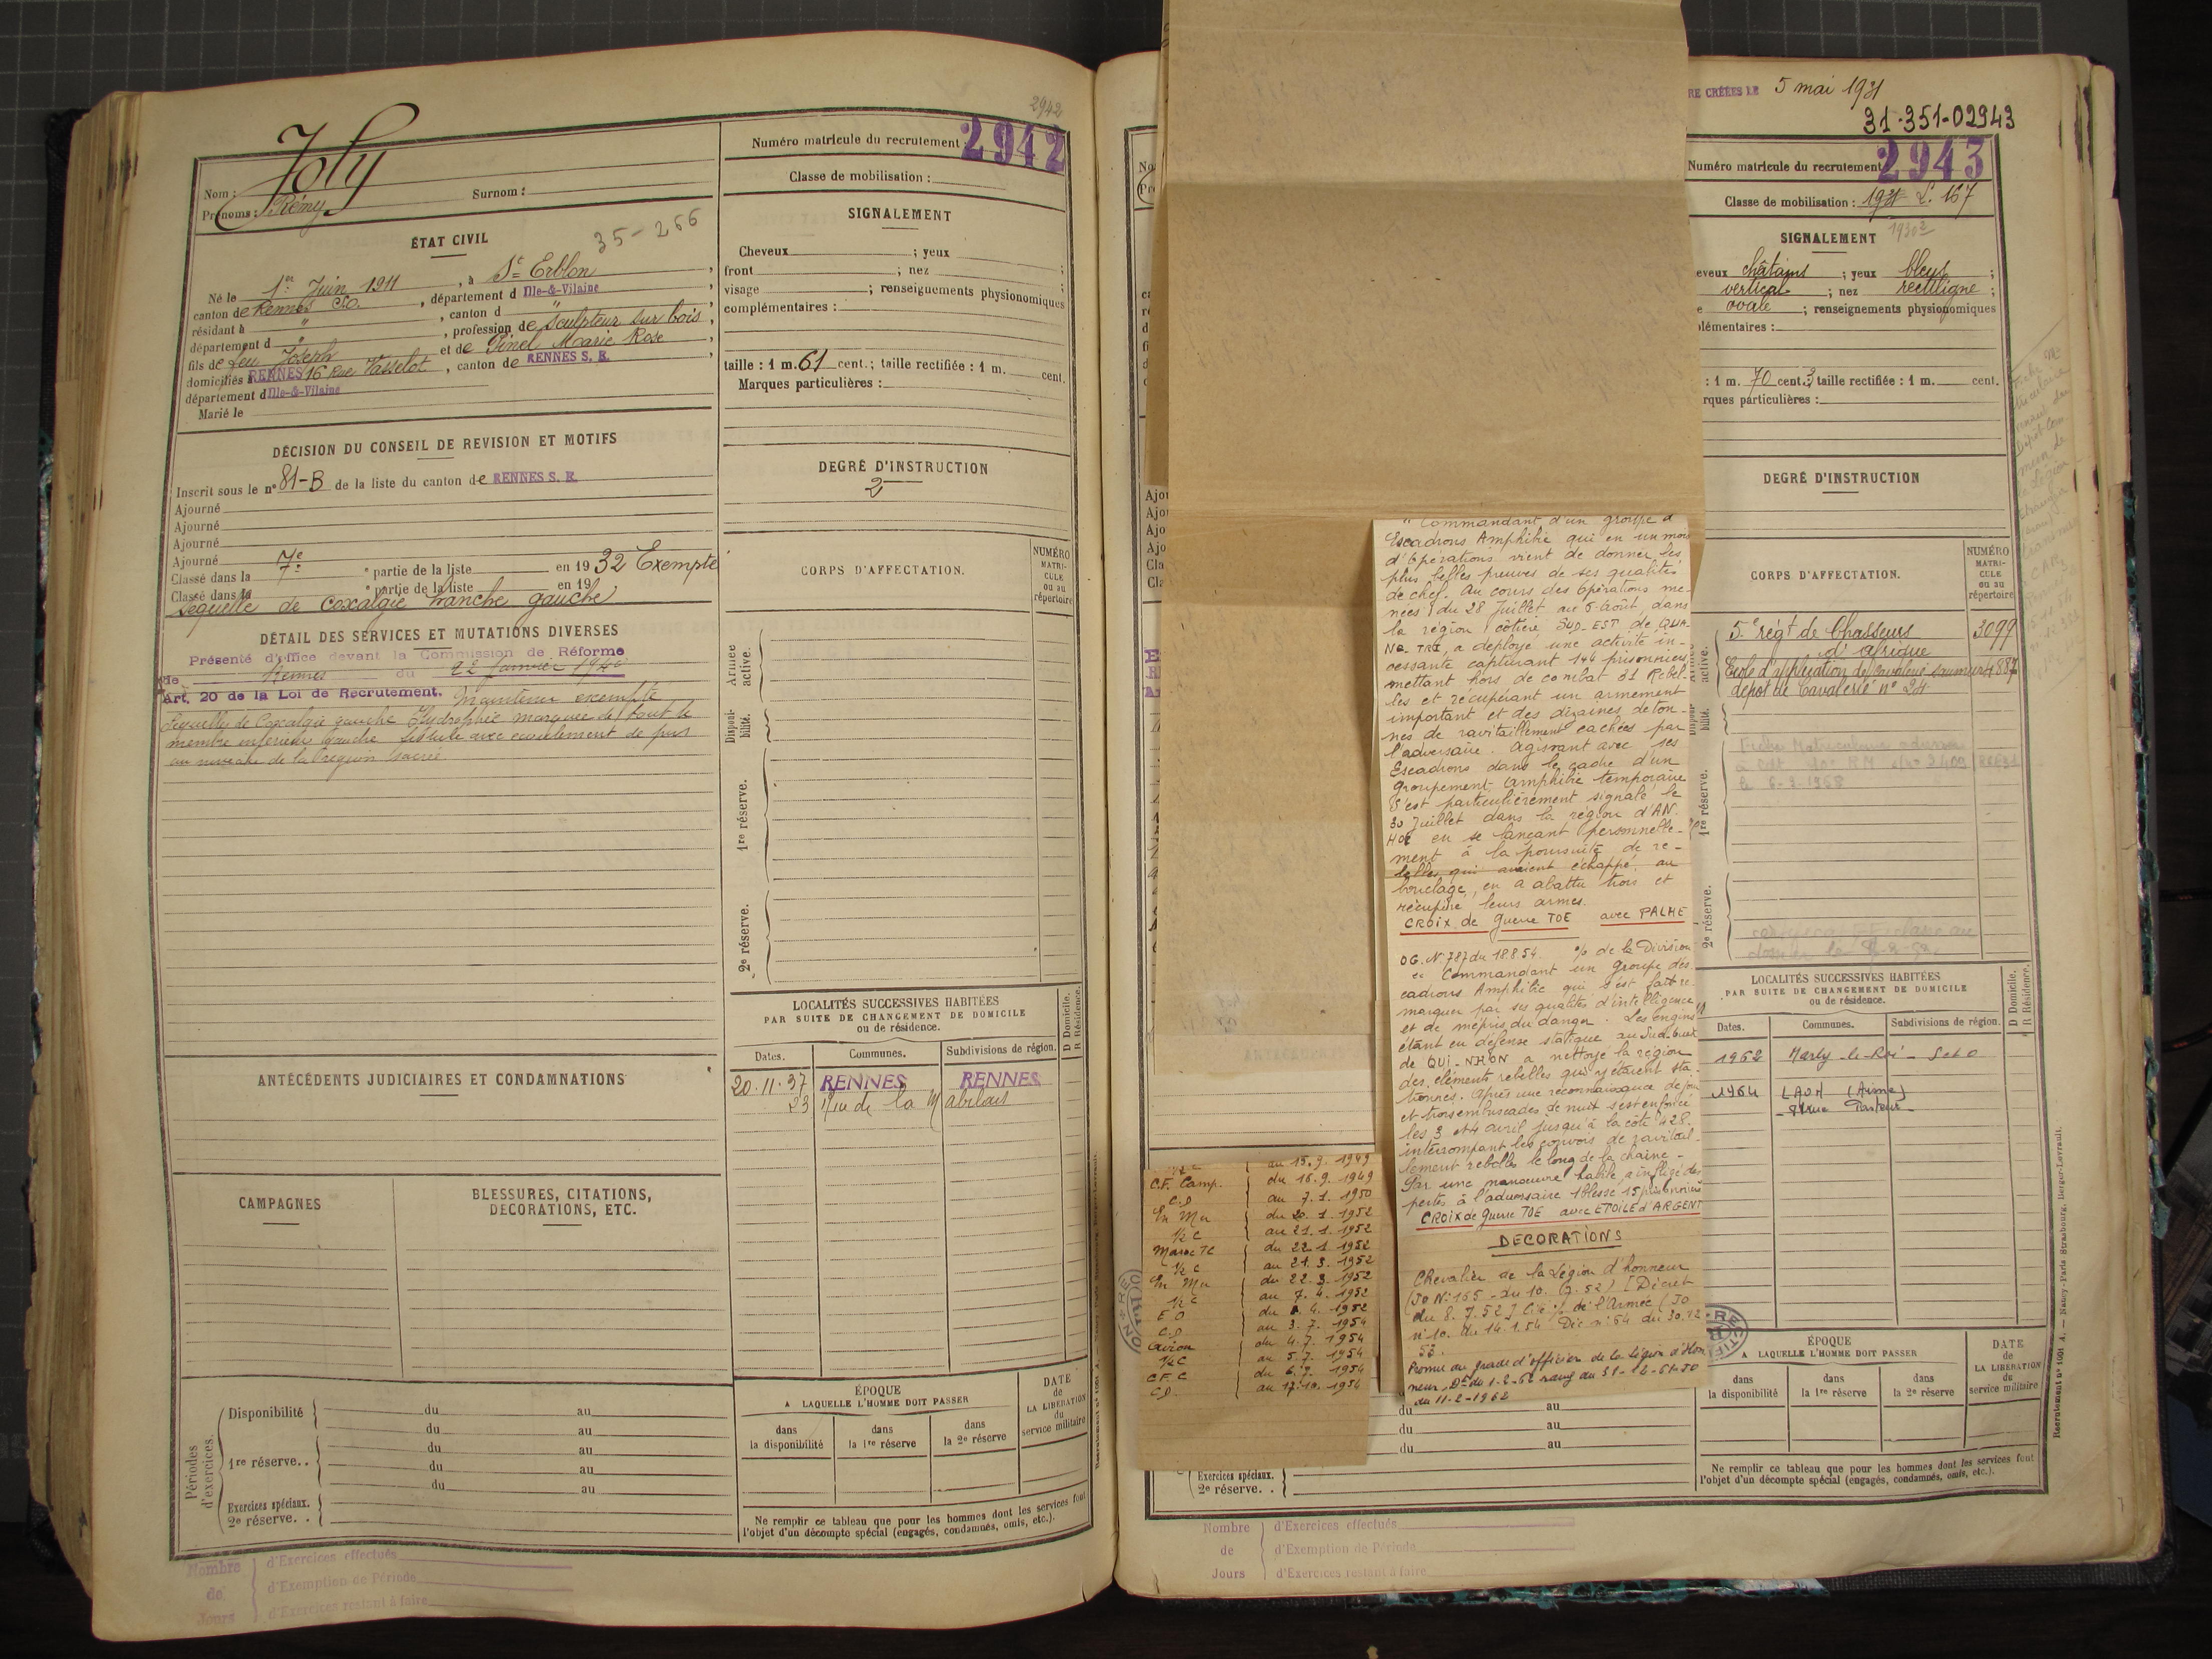 2942
Numéro matricule du recrutement : 2942
Classe de mobilisation :
Nom : Joly
Surnom :
Prénoms : Rémy
ÉTAT CIVIL
35-266
Né le 1er Juin 1911, à St Erblon,
canton de Rennes SO., département d Ille-&-Vilaine,
résidant à ", canton d ",
département d ", profession de sculpteur sur bois,
fils de feu Joseph et de Pinel Marie Rose
domiciliés à RENNES 16 Rue Vasselot, canton de RENNES S. E.,
département d Ille-&-Vilaine
Marié le
DÉCISION DU CONSEIL DE REVISION ET MOTIFS
Inscrit sous le n° 81-B de la liste du canton de RENNES S. E.
Ajourné
Ajourné
Ajourné
Ajourné
Classé dans la 7e partie de la liste en 1932 Exempté
Classé dans la e partie de la liste en 19
Sequelle de coxalgie hanche gauche
DÉTAIL DES SERVICES ET MUTATIONS DIVERSES
Présenté d'office devant la Commission de Réforme
de Rennes du 22 Janvier 1940
Art. 20 de la Loi de Recrutement. Maintenu exempté
Sequelles de Coxalgie gauche marquée de tout le
membre inférieur gauche fistule avec écoulement de pus
au niveau de la région sacrée
ANTÉCÉDENTS JUDICIAIRES ET CONDAMNATIONS
CAMPAGNES
BLESSURES, CITATIONS,
DÉCORATIONS, ETC.
Périodes d'exercices.
Disponibilité
du au
du au
1re réserve..
du au
du au
du au
Exercices spéciaux.
2e réserve. .
Nombre de Jours
d'Exercices effectués
d'Exemption de Période
d'Exercices restant à faire
SIGNALEMENT
Cheveux ; yeux ;
front ; nez ;
visage ; renseignements physionomiques
complémentaires :
taille : 1 m. 61 cent.; taille rectifiée : 1 m. cent.
Marques particulières :
DEGRÉ D'INSTRUCTION
2
CORPS D'AFFECTATION.
NUMÉRO
MATRI-
CULE
ou au
répertoire
Armée active.
Disponi-
bilité.
1re réserve.
2e réserve.
LOCALITÉS SUCCESSIVES HABITÉES
PAR SUITE DE CHANGEMENT DE DOMICILE
ou de résidence.
D Domicile.
R Résidence.
Dates.
Communes.
Subdivisions de région.
20.11.37 RENNES RENNES
23 rue de la Mabilais
ÉPOQUE
A LAQUELLE L'HOMME DOIT PASSER
dans
la disponibilité
dans
la 1re réserve
dans
la 2e réserve
DATE
de
LA LIBÉRATION
du
service militaire
Ne remplir ce tableau que pour les hommes dont les services font
l'objet d'un décompte spécial (engagés, condamnés, omis, etc.).
RE CRÉÉES LE 5 mai 1931
31-351-02943
Numéro matricule du recrutement 2943
Classe de mobilisation : 1931 L. 167
SIGNALEMENT
eveux châtains ; yeux bleus ;
vertical ; nez rectiligne ;
e ovale ; renseignements physionomiques
plémentaires :
: 1 m. 70 cent. 3; taille rectifiée : 1 m. cent.
rques particulières :
DEGRÉ D'INSTRUCTION
CORPS D'AFFECTATION.
NUMÉRO
MATRI-
CULE
ou au
répertoire
5e régt de Chasseurs d'Afrique 3099
Ecole d'application de Cavalerie Saumur 4887
depot de Cavalerie n° 24
le 6-3-1968
1re réserve.
2e réserve.
LOCALITÉS SUCCESSIVES HABITÉES
PAR SUITE DE CHANGEMENT DE DOMICILE
ou de résidence.
D Domicile.
R Résidence.
Dates.
Communes.
Subdivisions de région.
1962 Marly-le-Roi - S et O
1964 LAON (Aisne)
rue Pasteur
ÉPOQUE
A LAQUELLE L'HOMME DOIT PASSER
dans
la disponibilité
dans
la 1re réserve
dans
la 2e réserve
DATE
de
LA LIBÉRATION
du
service militaire
Ne remplir ce tableau que pour les hommes dont les services font
l'objet d'un décompte spécial (engagés, condamnés, omis, etc.).
" Commandant d'un groupe d'
Escadrons Amphibie qui en un mois
d'Opérations vient de donner les
plus belles preuves de ses qualités
de chef. Au cours des Opérations me-
nées du 28 Juillet au 6 Août, dans
la région côtière SUD-EST de QUA-
NG-TRI, a déployé une activité in-
cessante capturant 144 prisonniers
mettant hors de combat 31 Rebel-
les et récupérant un armement
important et des dizaines de ton-
nes de ravitaillement cachées par
l'adversaire. Agissant avec ses
Escadrons dans le cadre d'un
groupement amphibie temporaire
s'est particulièrement signalé le
30 Juillet dans la région d'AN-
HOI en se lançant personnelle-
ment à la poursuite de re-
belles qui avaient échappé au
bouclage, en a abattu trois et
récupéré leurs armes.
CROIX de guerre TOE avec PALME
OG. N° 787 du 18 8 54. % de la Division
" Commandant un groupe d'es-
cadrons Amphibie qui s'est fait re-
marquer par ses qualités d'intelligence
et de mépris du danger. Les engins
étant en défense statique au Sud-Ouest
de QUI-NHON a nettoyé la région
des éléments rebelles qui y étaient sta-
tionnés. Après une reconnaissance de jour
et trois embuscades de nuit s'est enfoncé
les 3 et 4 avril jusqu'à la côte 428.
interrompant les convois de ravitail-
lement rebelles le long de la chaîne -
Par une manoeuvre habile, a infligé des
pertes à l'adversaire 1 blessé 15 prisonniers
CROIX de guerre TOE avec ETOILE d'ARGENT
DECORATIONS
Chevalier de la Légion d'honneur
(JO N° 165 - du 10. 7. 52) [Décret
du 8. 7. 52] Cité % de l'Armée (JO
n° 10. du 14.1.54 Déc n° 64 du 30.12
53.
Promu au grade d'officier de la Légion d'Hon
neur. Dt du 1-2-62 rang du 31-12-61 JO
du 11-2-1962
au 15.9.1949
C.F. Camp. du 16.9.1949
C.D au 7.1.1950
En Mer du 20.1.1952
1/2 C au 21.1.1952
Maroc TC du 22.1.1952
1/2 C au 21.3.1952
En Mer du 22.3.1952
1/2 C au 7.4.1952
E O du 8.4.1952
C.D au 3.7.1954
Avion du 4.7.1954
1/2 C au 5.7.1954
C.F.C du 6.7.1954
C.D. au 17.10.1954
du au
du au
du au
Exercices spéciaux.
2e réserve. .
Nombre de Jours
d'Exercices effectués
d'Exemption de Période
d'Exercices restant à faire
Recrutement n° 1001 A. — Nancy-Paris-Strasbourg, Berger-Levrault.